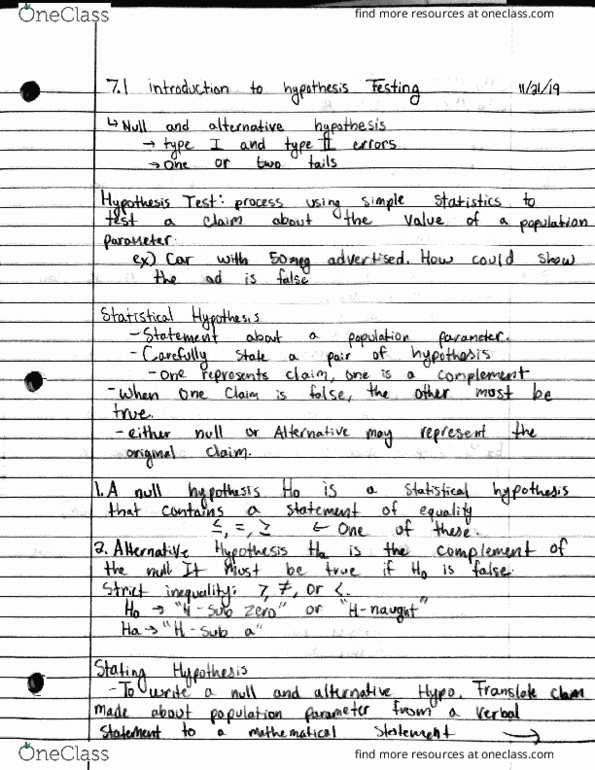 OneClass
find more resources at oneclass.com
7.1 introduction to hypothesis Testing 11/21/19
↳ Null and alternative hypothesis
→ type I and type II errors
→ One or two tails
Hypothesis Test: process using simple statistics to
test a claim about the value of a population
parameter.
ex) Car with 50mpg advertised. How could show
the ad is false
Statistical Hypothesis
- Statement about a population parameter.
- Carefully state a pair of hypothesis
- One represents claim, one is a complement
- When one claim is false, the other must be
true.
- either null or Alternative may represent the
original claim.
1. A null hypothesis Ho is a statistical hypothesis
that contains a statement of equality
≤, =, ≥ ← One of these.
2. Alternative Hypothesis Ha is the complement of
the null It must be true if Ho is false.
Strict inequality: >, ≠, or <.
Ho → "H-sub zero" or "H-naught"
Ha → "H-sub a"
Stating Hypothesis
- To write a null and alternative Hypo. Translate claim
made about population parameter from a verbal
statement to a mathematical statement →
OneClass
find more resources at oneclass.com